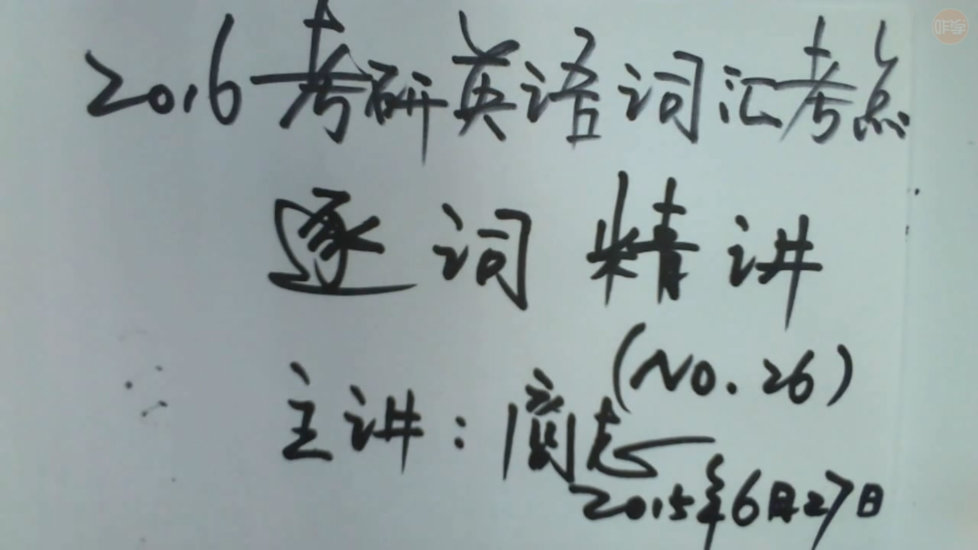 2016考研英语词汇考点
逐词精讲
(No.26)
主讲:
2015年6月27日